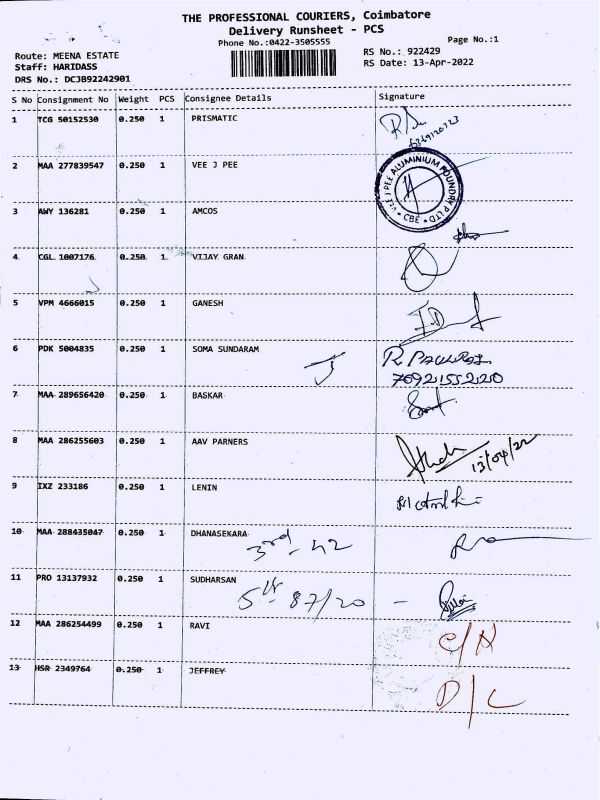 THE PROFESSIONAL COURIERS, Coimbatore
Delivery Runsheet - PCS
Phone No.:0422-3505555
Page No.:1
Route: MEENA ESTATE
Staff: HARIDASS
DRS No.: DCJB92242901
RS No.: 922429
RS Date: 13-Apr-2022
S No Consignment No Weight PCS Consignee Details Signature
1 TCG 50152530 0.250 1 PRISMATIC
2 MAA 277839547 0.250 1 VEE J PEE
VEE J PEE ALUMINIUM FOUNDRY P LTD
CBE
3 AWY 136281 0.250 1 AMCOS
4 CGL 1007176 0.250 1 VIJAY GRAN
5 VPM 4666015 0.250 1 GANESH
6 PDK 5004835 0.250 1 SOMA SUNDARAM
7092155220
7 MAA 289656420 0.250 1 BASKAR
8 MAA 286255603 0.250 1 AAV PARNERS
13/04/22
9 IXZ 233186 0.250 1 LENIN
10 MAA 288435047 0.250 1 DHANASEKARA
3rd - 42
11 PRO 13137932 0.250 1 SUDHARSAN
5th - 87/20 -
12 MAA 286254499 0.250 1 RAVI
13 HSR 2349764 0.250 1 JEFFREY
D/L